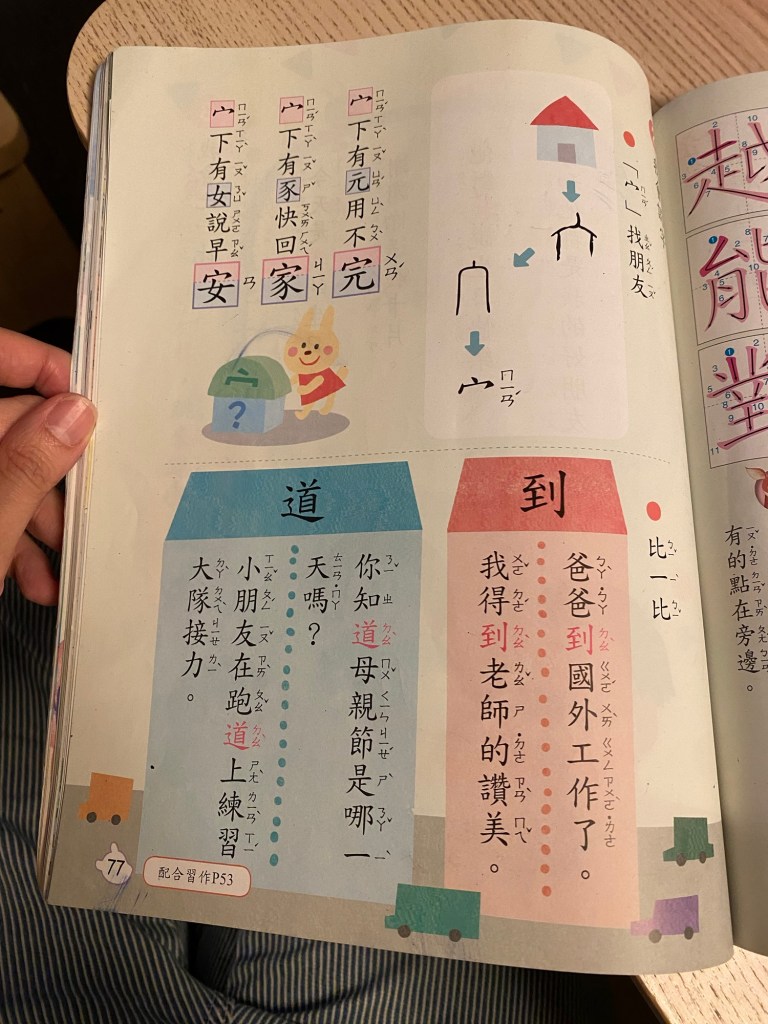 越
能
對
有的點在旁邊。
「宀」找朋友
宀
宀下有元用不完
宀下有豕快回家
宀下有女說早安
宀
?
比一比
到
爸爸到國外工作了。
我得到老師的讚美。
道
你知道母親節是哪一
天嗎?
小朋友在跑道上練習
大隊接力。
77
配合習作P53